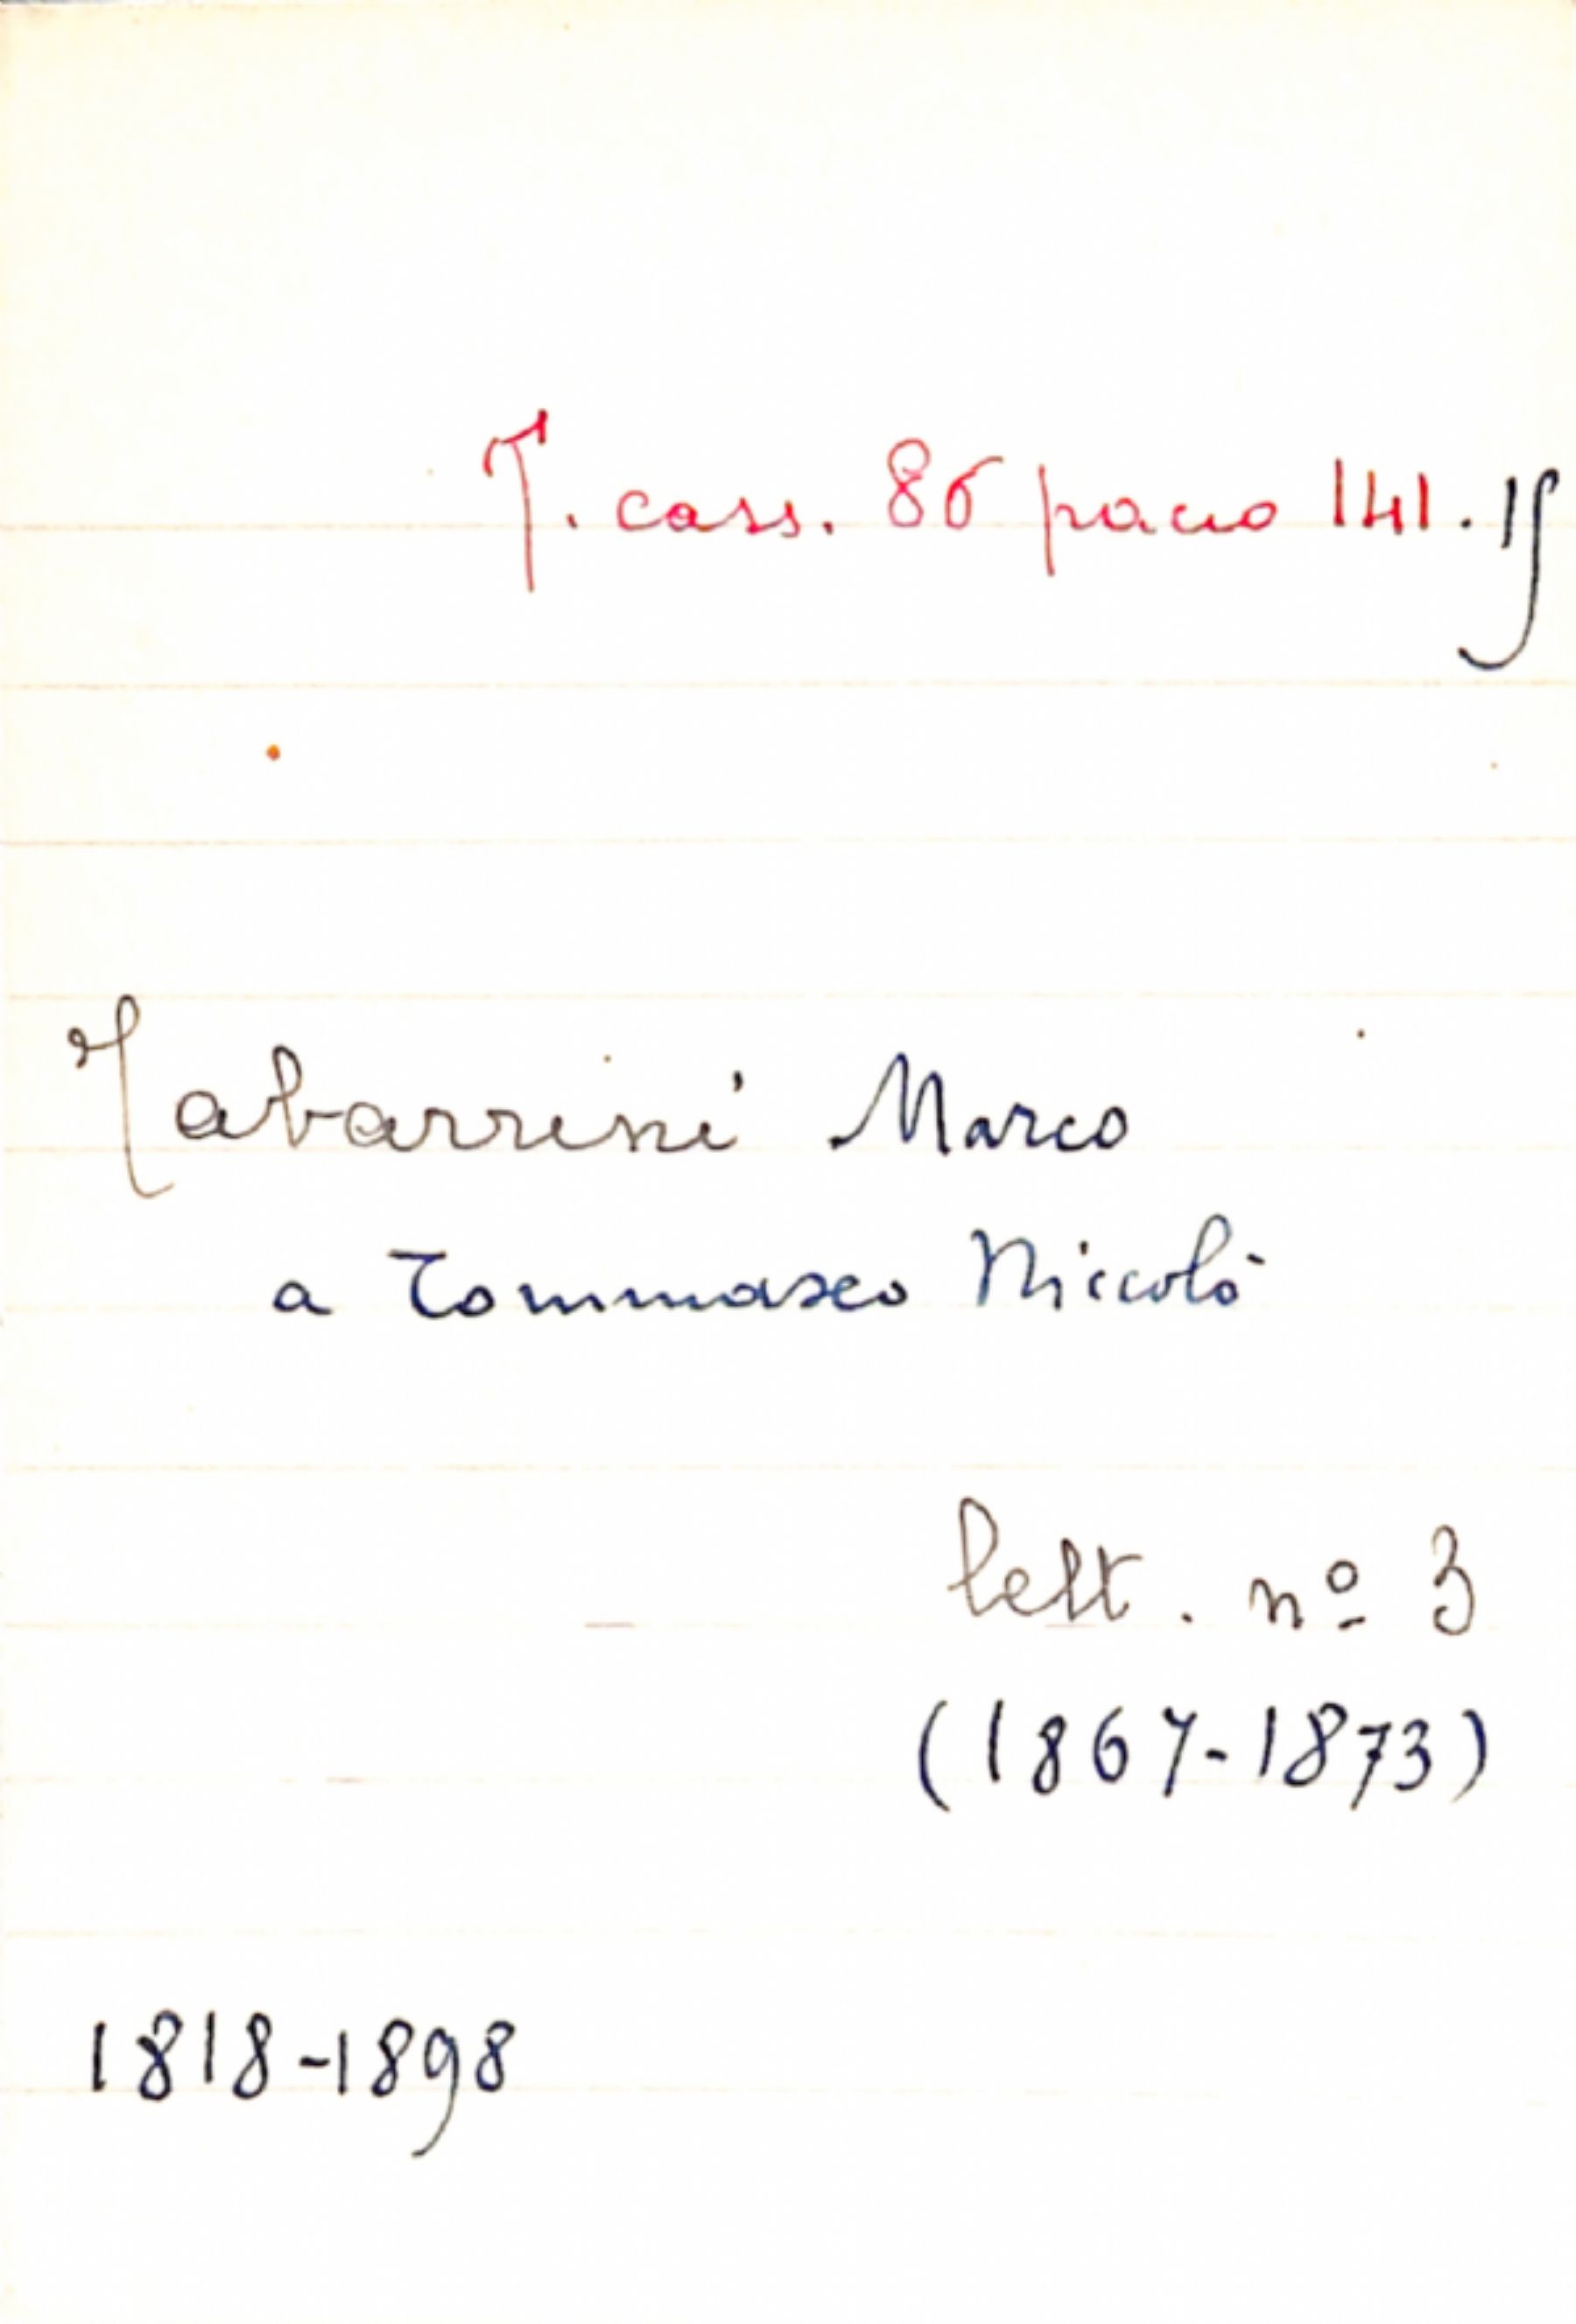 T. cass. 86 pacco 141.15
Tabarrini Marco
a Tommaseo Niccolò
lett. nº 3
(1867-1873)
1818-1898